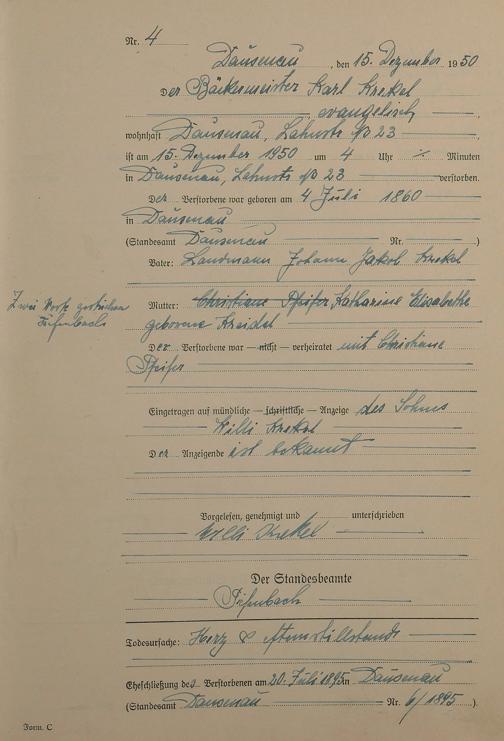 Nr. 4
Dausenau, den 15. Dezember 1950
Der Bäckermeister Karl Krekel
evangelisch,
wohnhaft Dausenau, Lahnstr. No 23,
ist am 15. Dezember 1950 um 4 Uhr ÷ Minuten
in Dausenau, Lahnstr. No 23 verstorben.
Der Verstorbene war geboren am 4 Juli 1860
in Dausenau
(Standesamt Dausenau Nr. )
Vater: Landmann Johann Jakob Krekel
Zwei Worte gestrichen
Mutter: Christiane Pfeifer Katharine Elisabethe
geborene Kreidel
Der Verstorbene war — nicht — verheiratet mit Christiane
Pfeifer
Eingetragen auf mündliche — schriftliche — Anzeige des Sohnes
Willi Krekel
Der Anzeigende ist bekannt
Vorgelesen, genehmigt und unterschrieben
Willi Krekel
Der Standesbeamte
Todesursache: Herz & Atemstillstand
Eheschließung des Verstorbenen am 20. Juli 1895 in Dausenau
(Standesamt Dausenau Nr. 6/1895).
Form. C